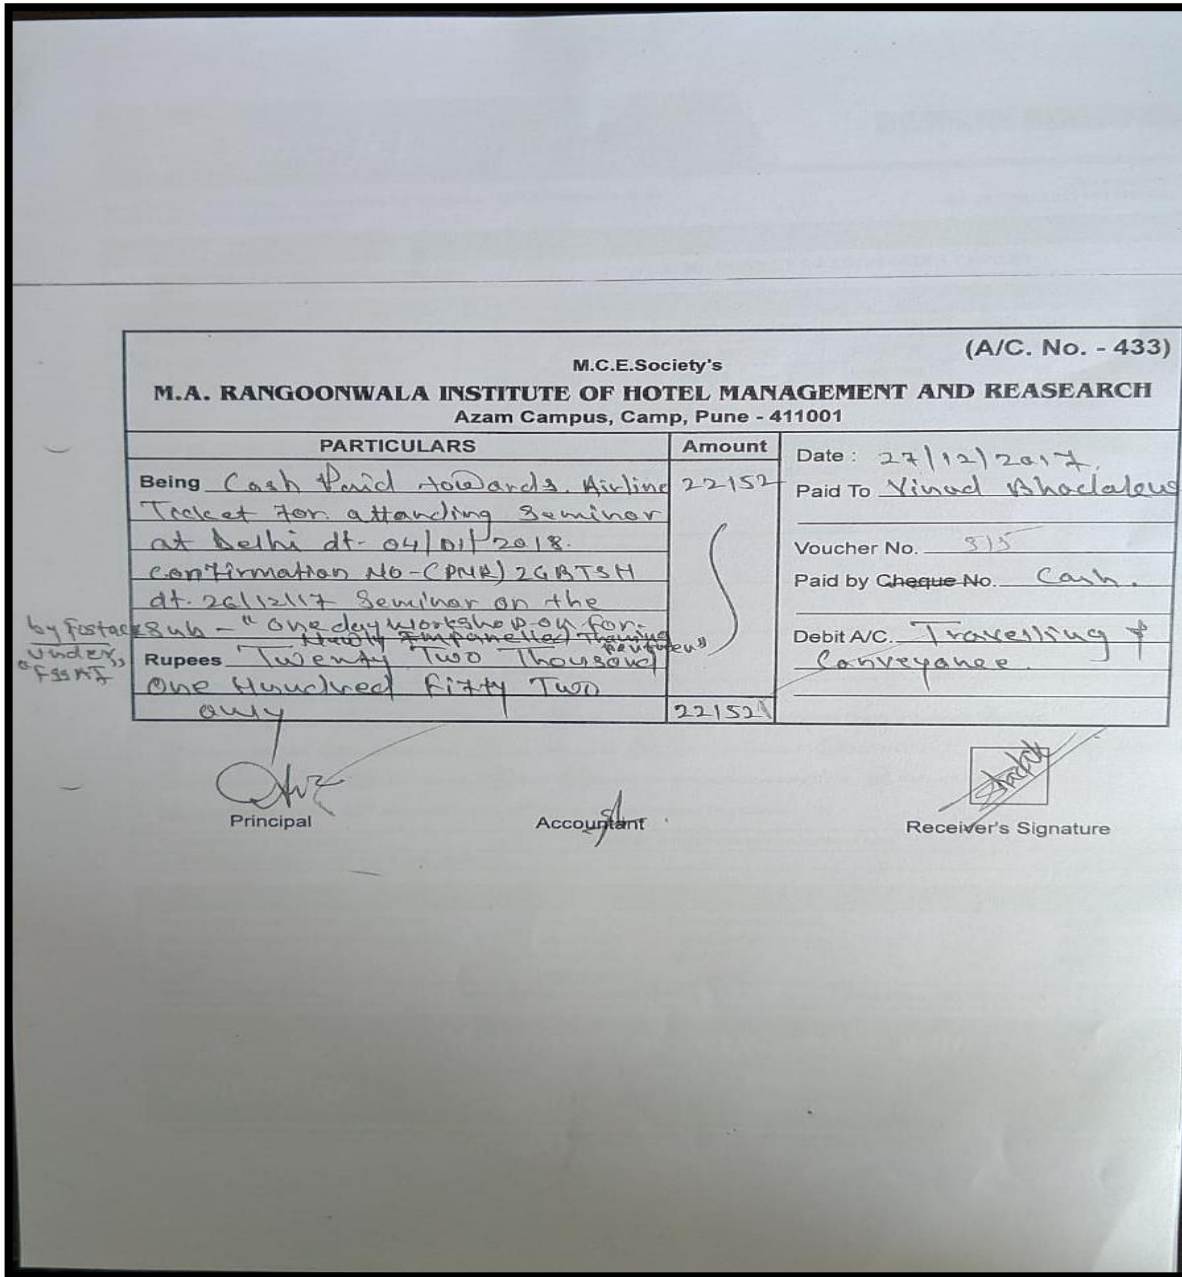 (A/C. No. - 433)
M.C.E.Society's
M.A. RANGOONWALA INSTITUTE OF HOTEL MANAGEMENT AND REASEARCH
Azam Campus, Camp, Pune - 411001
PARTICULARS
Amount
Being Cash Paid towards. Airline
22152
Ticket for. attanding Seminar
at Delhi dt- 04/01/2018.
confirmation No-(PNR) 2GBTSH
dt. 26/12/17 Seminar on the
Sub - "One day workshop on for.
Newly Empanelled Training
by Fostac
under
"FSSAI"
Rupees Twenty Two Thousand
One Hundred Fifty Two
only
22152
Date : 27/12/2017.
Paid To Vinod
Voucher No. 315
Paid by Cheque No. Cash.
Debit A/C. Travelling &
Conveyance.
Principal
Accountant
Receiver's Signature